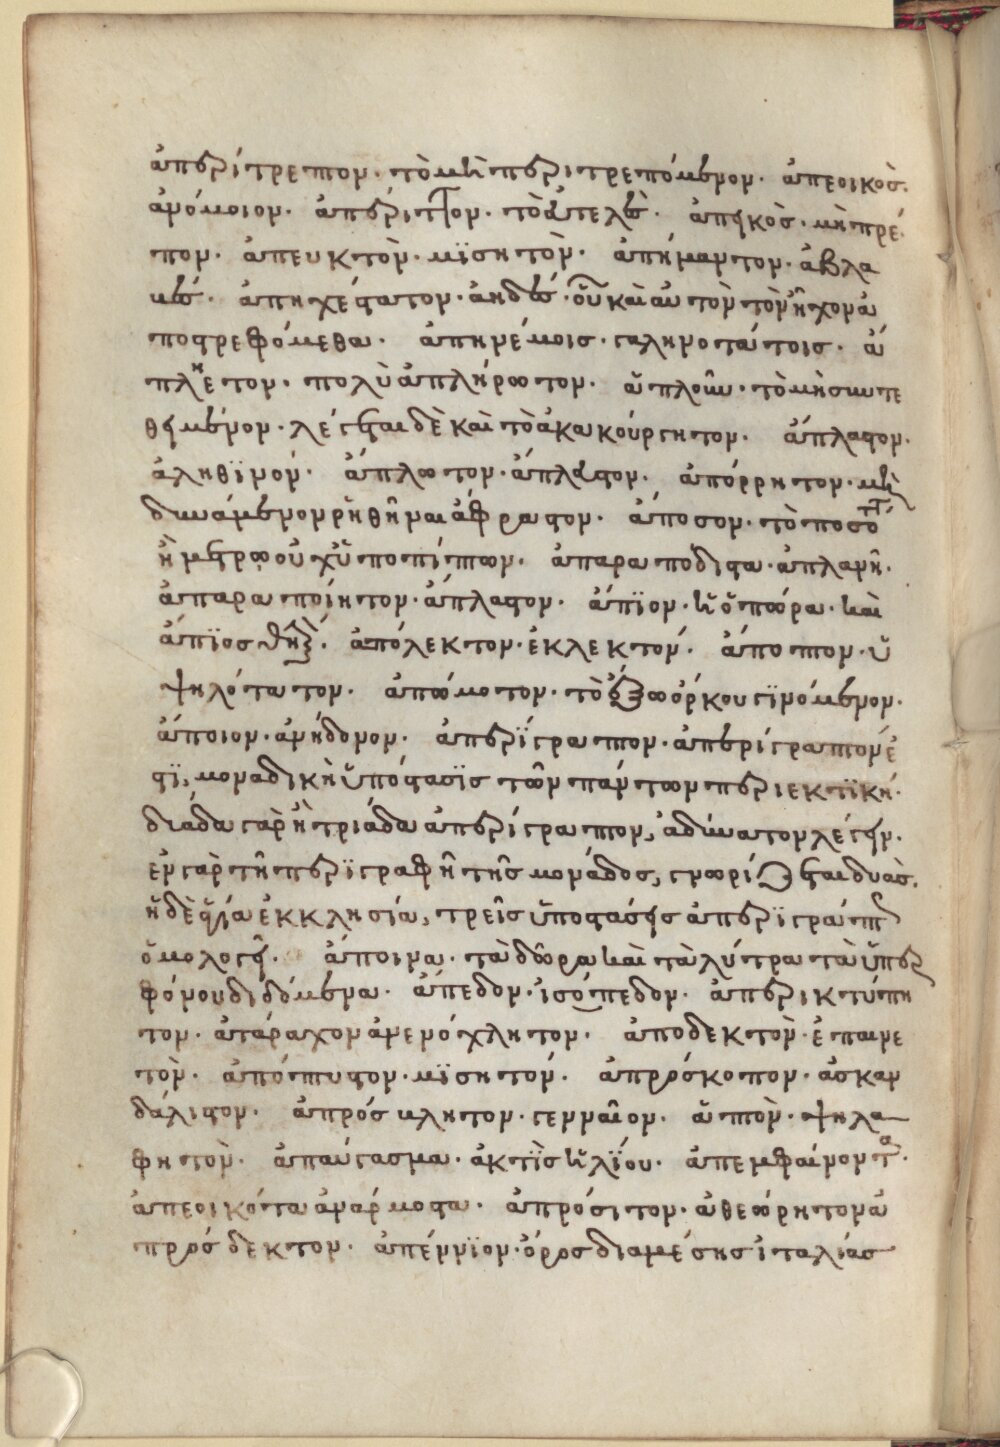 ἀπερίτρεπτον· τὸ μὴ περιτρεπόμενον· ἀπεοικὸς·
ἀνόμοιον· ἀπεριττον· τὸ ἀτελὲς· ἀπεικὸς· μὴ πρέ
πον· ἀπευκτὸν· μϊσητὸν· ἀπήμαντον· ἀβλα
βὲς· ἀπηχέστατον· ἀηδὲς· οὗ καὶ αυτὸν τὸν ἦχον ἀ
ποστρεφόμεθα· ἀπηνέμοις· γαληνοτάτοις· ἀ
πλήετον· πολὺ ἀπλήρωτον· ἁπλοῦν· τὸ μὴ συντε
θειμένον· λέγεται δὲ καὶ τὸ ἀκακούργητον· ἄπλαστον·
ἀληθϊνόν· ἄπλωτον· ἄπλευστον· ἀπόρρητον· μὴ
δυνάμενον ῥηθῆναι ἄφραστον· ἄποσον· τὸ ποσότητι
ἢ μέτρω οὐχ ὑποπίπτων· ἀπαραπόδιστα· ἀπλανῆ·
ἀπαραποίητον· ἄπλαστον· ἄπϊον· ἡ ὀπώρα· καὶ
ἄπϊος
ἀπόλεκτον· ἐκλεκτόν· ἄποπτον· ὑ
ψηλότατον· ἀπώμοτον· τὸ ἔξω ὅρκου γϊνόμενον·
ἄποιον· ἀνήδονον· ἀπερίγραπτον· ἀπερίγραπτον ἐ
στϊ, μοναδικὴ ὑπόστασϊς τῶν πάντων περιεκτϊκή·
δυάδα γὰρ ἢ τριάδα ἀπερίγραπτον, ἀδύνατον λέγειν·
ἐν γὰρ τῆ περϊγραφῆ τῆς μονάδος, γνωρίζεται δυὰς.
ἡ δὲ ἁγία ἐκκλησία, τρεῖς ὑποστάσεις ἀπερϊγράπτους
ὁμολογεῖ· ἄποινα· τὰ δῶρα καὶ τὰ λύτρα τὰ ὑπερ
φόνου διδόμενα· ἄπεδον· ἰσόπεδον· ἀπερικτύπη
τον· ἀτάραχον ἀνενόχλητον· ἀποδεκτὸν· ἐπαινε
τὸν· ἀπόπτυστον· μϊσητόν· ἀπρόσκοπον· ἀσκαν
δάλιστον· ἀπρόσκλητον· γενναῖον· ἁπτὸν· ψηλα
φητὸν· ἀπαύγασμα· ἀκτὶς ἡλΐου· ἀπεμφαίνοντα·
ἀπεοικότα ἀνάρμοστα· ἀπρόσιτον· ἀθεώρητον ἀ
πρόσδεκτον· ἀπέννϊον· ὄρος διαμέσης ἰταλίας